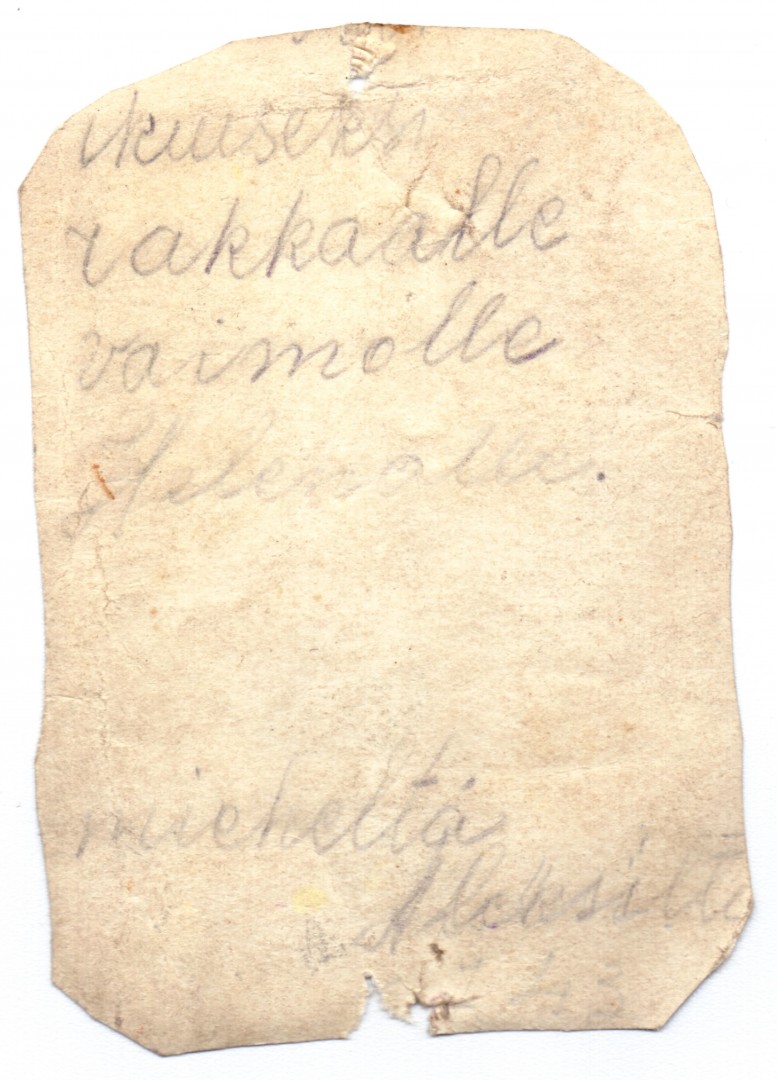 ikuiseksi
rakkaalle
vaimolle
Helenalle.
mieheltä
Aleksilta
43